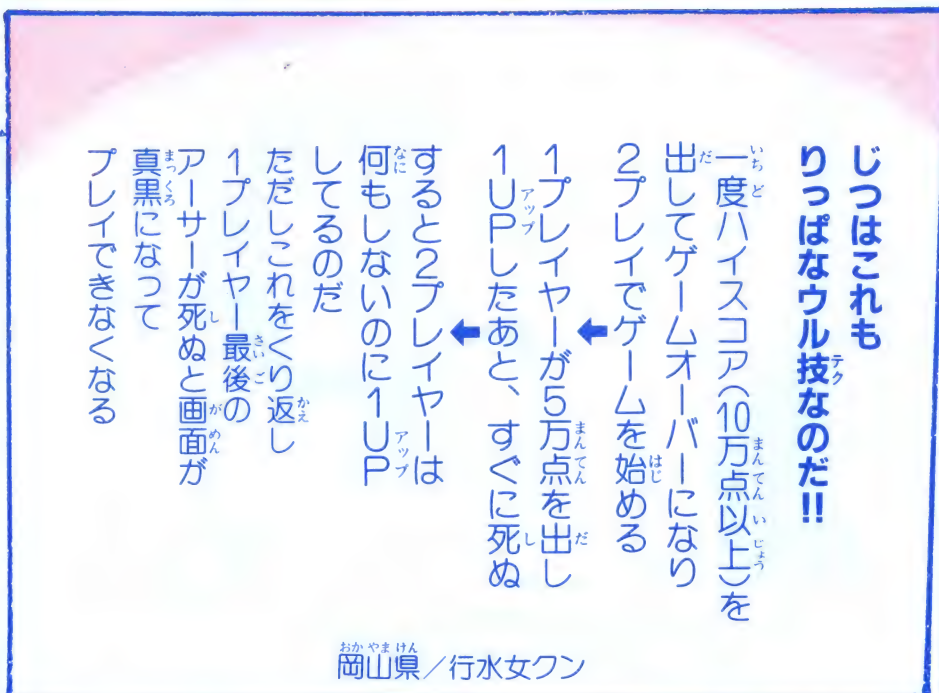 じつはこれも
りっぱなウル技なのだ!!
一度ハイスコア(10万点以上)を
出してゲームオーバーになり
2プレイでゲームを始める
⬇
1プレイヤーが5万点を出し
1UPしたあと、すぐに死ぬ
⬇
すると2プレイヤーは
何もしないのに1UP
してるのだ
ただしこれをくり返し
1プレイヤー最後の
アーサーが死ぬと画面が
真黒になって
プレイできなくなる
岡山県/行水女クン